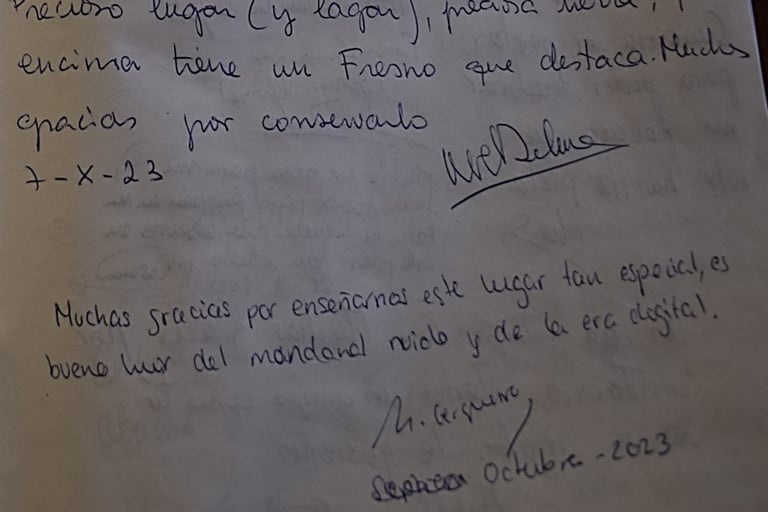 Precioso lugar (y lagar), preciosa
encima tiene un Fresno que destaca. Muchas
gracias por conservarlo
7-X-23
Muchas gracias por enseñarnos este lugar tan especial, es
bueno huir del mundanal ruido y de la era digital.
M. Cerquero
Octubre - 2023